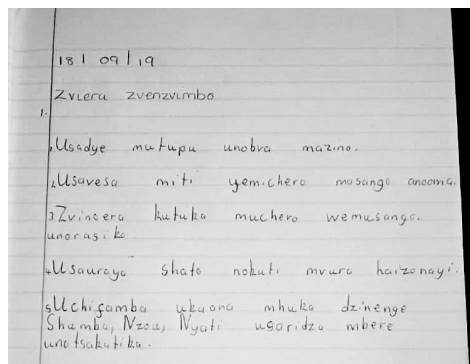 18 | 09 | 19
Zviera zvenzvimbo
1.
1 Usadye mutupu unobva mazino.
2 Usavesa miti yemichero musango anooma.
3 Zvinoera kutuka muchero wemusango.
unorasika
4 Usauraya shato nokuti mvura haizonayi.
5 Uchifamba ukaona mhuka dzinenge
Shumba, Nzou, Nyati usaridza mbere
unotsakatika.